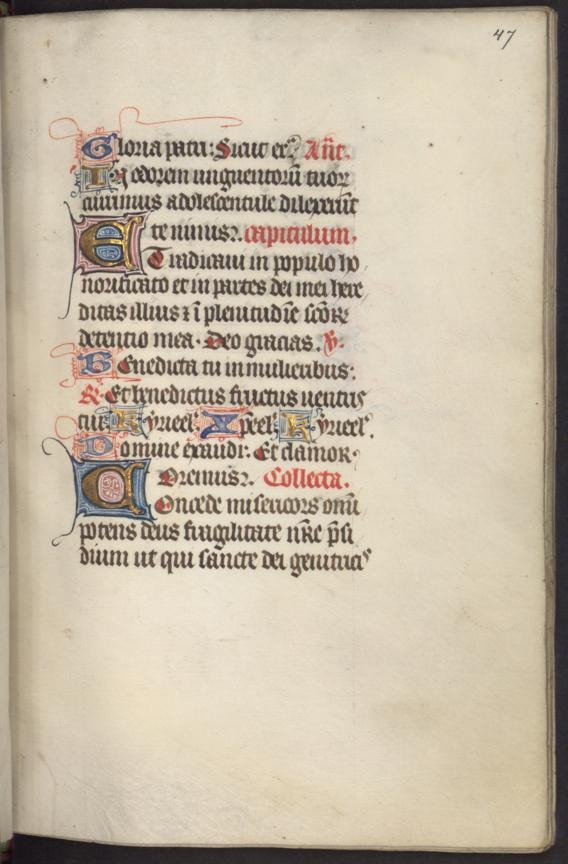 47
Gloria patri: Sicut er̃. Añt.
In odorem unguentorũ tuorꝝ
currimus adolescentule dilexerũt
te nimis. capitulum.
Et radicaui in populo ho
norificato et in partes dei mei here
ditas illius ⁊ ĩ plenitudĩe scõrꝝ
detentio mea. Deo gracias. V.
Benedicta tu in mulieribus:
R. Et benedictus fructus uentris
tui: Kyrieel. Xp̃eel. Kyrieel.
Domine exaudi. Et clamor.
Oremus. Collecta.
Concede misericors omĩ
potens deus fragilitate nr̃e p̃si
dium ut qui sancte dei genitricis